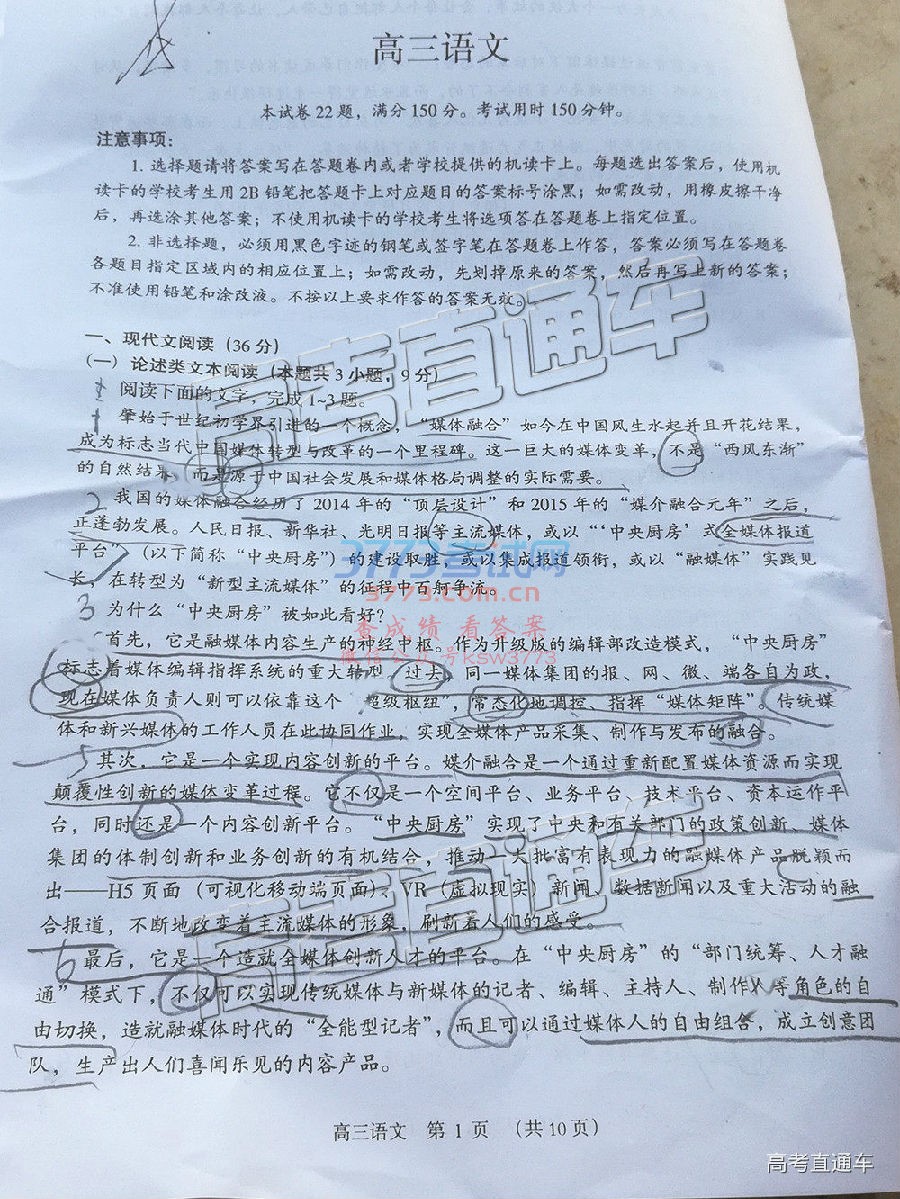 高三语文
本试卷22题，满分150分。考试用时150分钟。
注意事项：
1. 选择题请将答案写在答题卷内或者学校提供的机读卡上。每题选出答案后，使用机
读卡的学校考生用2B铅笔把答题卡上对应题目的答案标号涂黑；如需改动，用橡皮擦干净
后，再选涂其他答案；不使用机读卡的学校考生将选项答在答题卷上指定位置。
2. 非选择题，必须用黑色字迹的钢笔或签字笔在答题卷上作答，答案必须写在答题卷
各题目指定区域内的相应位置上；如需改动，先划掉原来的答案，然后再写上新的答案；
不准使用铅笔和涂改液。不按以上要求作答的答案无效。
一、现代文阅读（36分）
（一）论述类文本阅读（本题共3小题，9分）
阅读下面的文字，完成1~3题。
1 肇始于世纪初学界引进的一个概念，“媒体融合”如今在中国风生水起并且开花结果，
成为标志当代中国媒体转型与改革的一个里程碑。这一巨大的媒体变革，不是“西风东渐”
的自然结果，而是源于中国社会发展和媒体格局调整的实际需要。
2 我国的媒体融合经历了2014年的“顶层设计”和2015年的“媒介融合元年”之后，
正蓬勃发展。人民日报、新华社、光明日报等主流媒体，或以“‘中央厨房’式全媒体报道
平台”（以下简称“中央厨房”）的建设取胜，或以集成报道领衔，或以“融媒体”实践见
长，在转型为“新型主流媒体”的征程中百舸争流。
3 为什么“中央厨房”被如此看好？
首先，它是融媒体内容生产的神经中枢。作为升级版的编辑部改造模式，“中央厨房”
标志着媒体编辑指挥系统的重大转型。过去，同一媒体集团的报、网、微、端各自为政，
现在媒体负责人则可以依靠这个“超级枢纽”，常态化地调控、指挥“媒体矩阵”。传统媒
体和新兴媒体的工作人员在此协同作业，实现全媒体产品采集、制作与发布的融合。
5 其次，它是一个实现内容创新的平台。媒介融合是一个通过重新配置媒体资源而实现
颠覆性创新的媒体变革过程。它不仅是一个空间平台、业务平台、技术平台、资本运作平
台，同时还是一个内容创新平台。“中央厨房”实现了中央和有关部门的政策创新、媒体
集团的体制创新和业务创新的有机结合，推动一大批富有表现力的融媒体产品脱颖而
出——H5页面（可视化移动端页面）、VR（虚拟现实）新闻、数据新闻以及重大活动的融
合报道，不断地改变着主流媒体的形象，刷新着人们的感受。
6 最后，它是一个造就全媒体创新人才的平台。在“中央厨房”的“部门统筹、人才融
通”模式下，不仅可以实现传统媒体与新媒体的记者、编辑、主持人、制作人等角色的自
由切换，造就融媒体时代的“全能型记者”，而且可以通过媒体人的自由组合，成立创意团
队，生产出人们喜闻乐见的内容产品。
高三语文 第1页 （共10页）
高考直通车
高考直通车
3773考试网
3773.com.cn
查成绩 看答案
微信公众号ksw3773
高考直通车